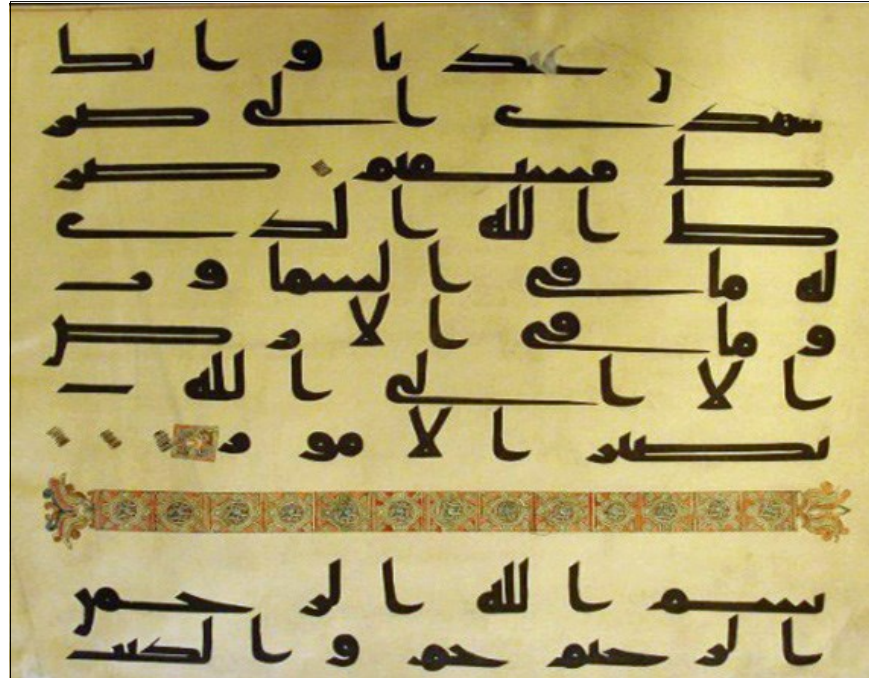 من عبدنا وانك
لتهدى الى صر
ط مستقيم صر
ط الله الذى
له ما فى السموت
وما فى الارض
الا الى الله
تصير الامور
بسم الله الرحمن
الرحيم حم والكتب